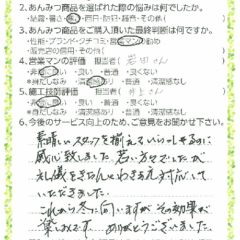 2.あんみつ商品を選ばれた際の悩みは何でしたか。
・結露・暑さ・寒さ・西日・防犯・騒音・その他(
3.あんみつ商品をご購入頂いた最終判断は何ですか。
・性能・ブランド・クチコミ・営業マンの勧め
・販売店の信用・その他(
4.営業マンの評価 担当 岩田さん
・非常に良い ・良い ・普通 ・良くない
※身だしなみ ・清潔感あり ・普通 ・清潔感なし
5.施工技師評価 担当 井上さん
・非常に良い ・良い ・普通 ・良くない
※身だしなみ ・清潔感あり ・普通 ・清潔感なし
6.今後のサービス向上のため、ご意見をお聞かせ下さい。
素晴しいスタッフを揃えるいらっしゃるのに
感心致しました 若い方々でしたが
礼儀をきちんとわきまえ対応して
いただきました。
これから冬に向いますがその効果が
楽しみです ありがとうございました。